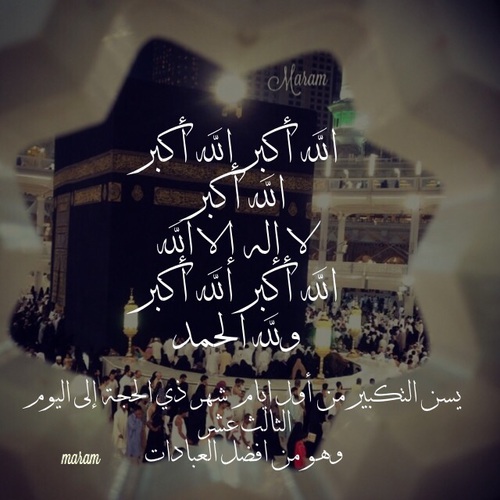 Maram
الله أكبر الله أكبر
الله أكبر
لا إله إلا الله
الله أكبر ألله أكبر
ولله الحمد
يسن التكبير من أول ايام شهر ذي الحجة إلى اليوم
الثالث عشر
وهو من افضل العبادات
maram